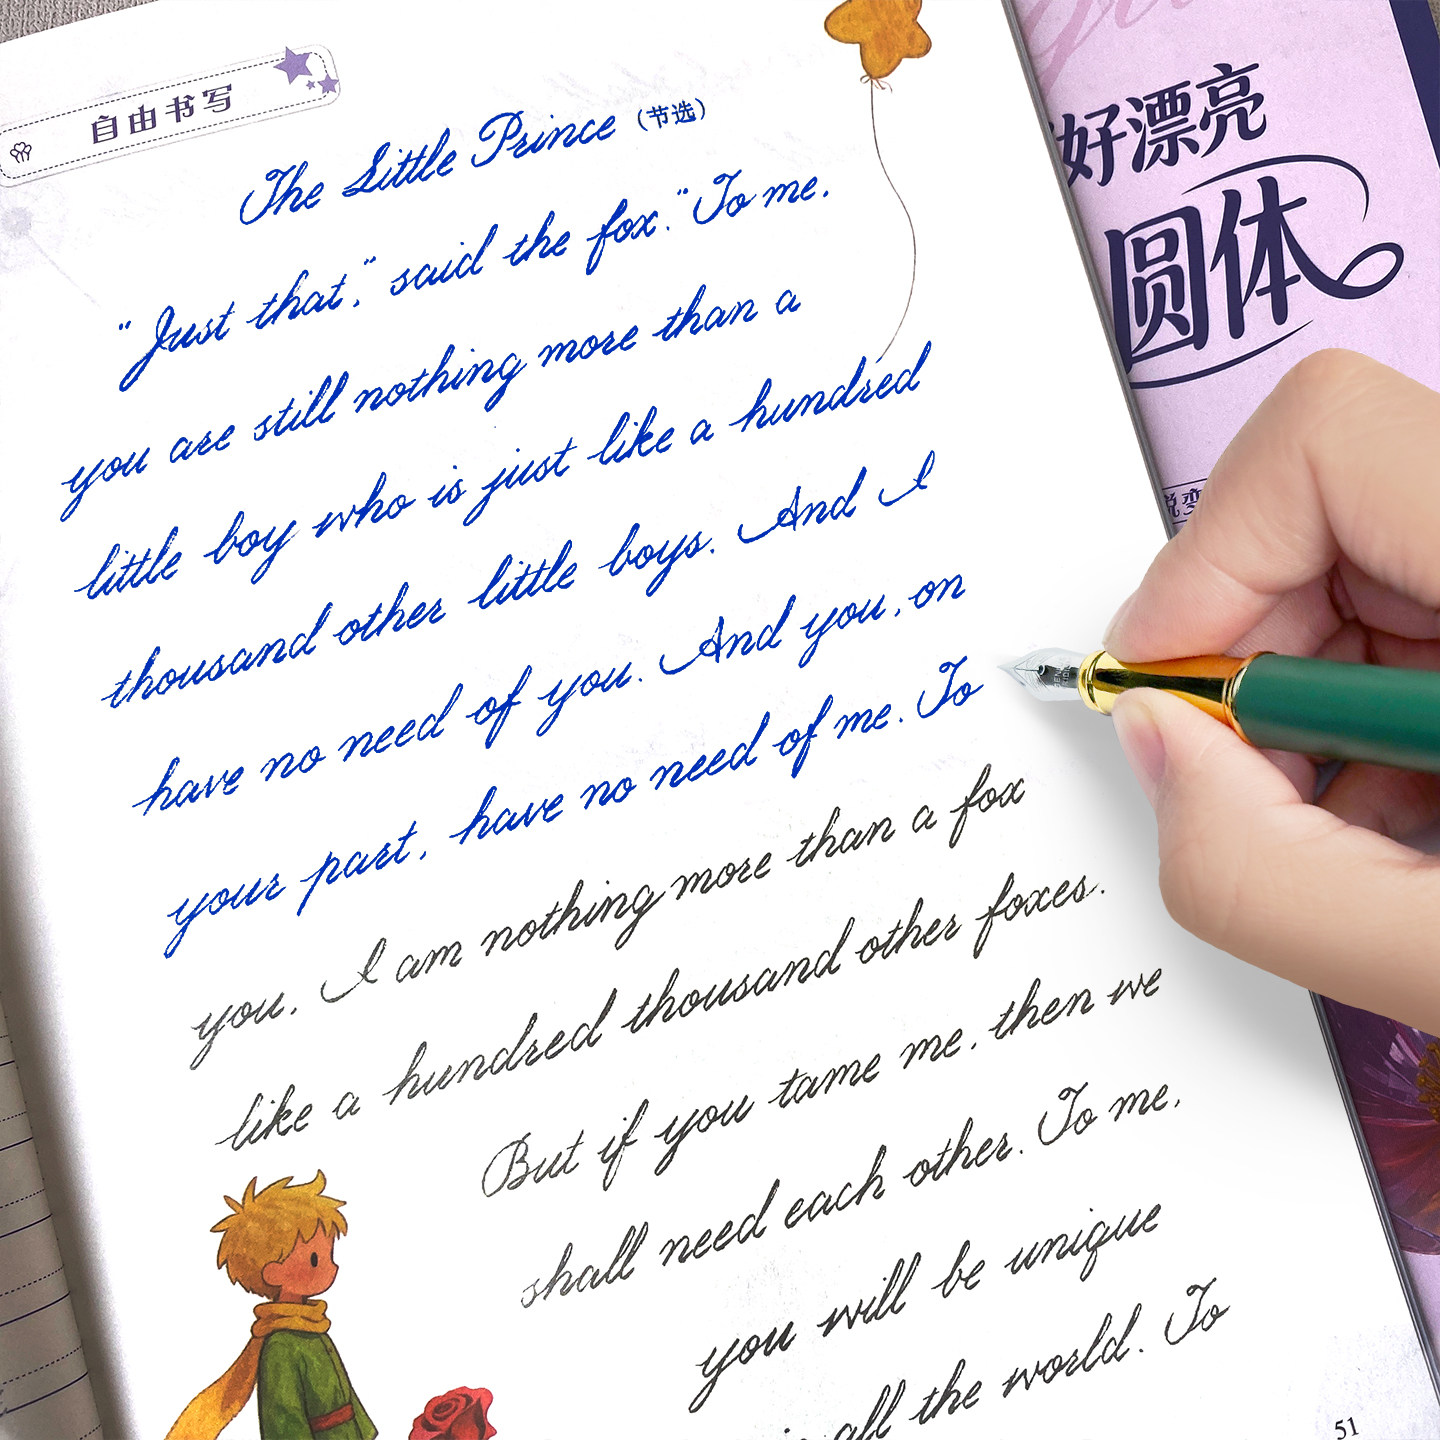 自由书写
The Little Prince (节选)
"Just that," said the fox. "To me,
you are still nothing more than a
little boy who is just like a hundred
thousand other little boys. And I
have no need of you. And you, on
your part, have no need of me. To
you, I am nothing more than a fox
like a hundred thousand other foxes.
But if you tame me, then we
shall need each other. To me,
you will be unique
all the world. To
51
好漂亮
圆体